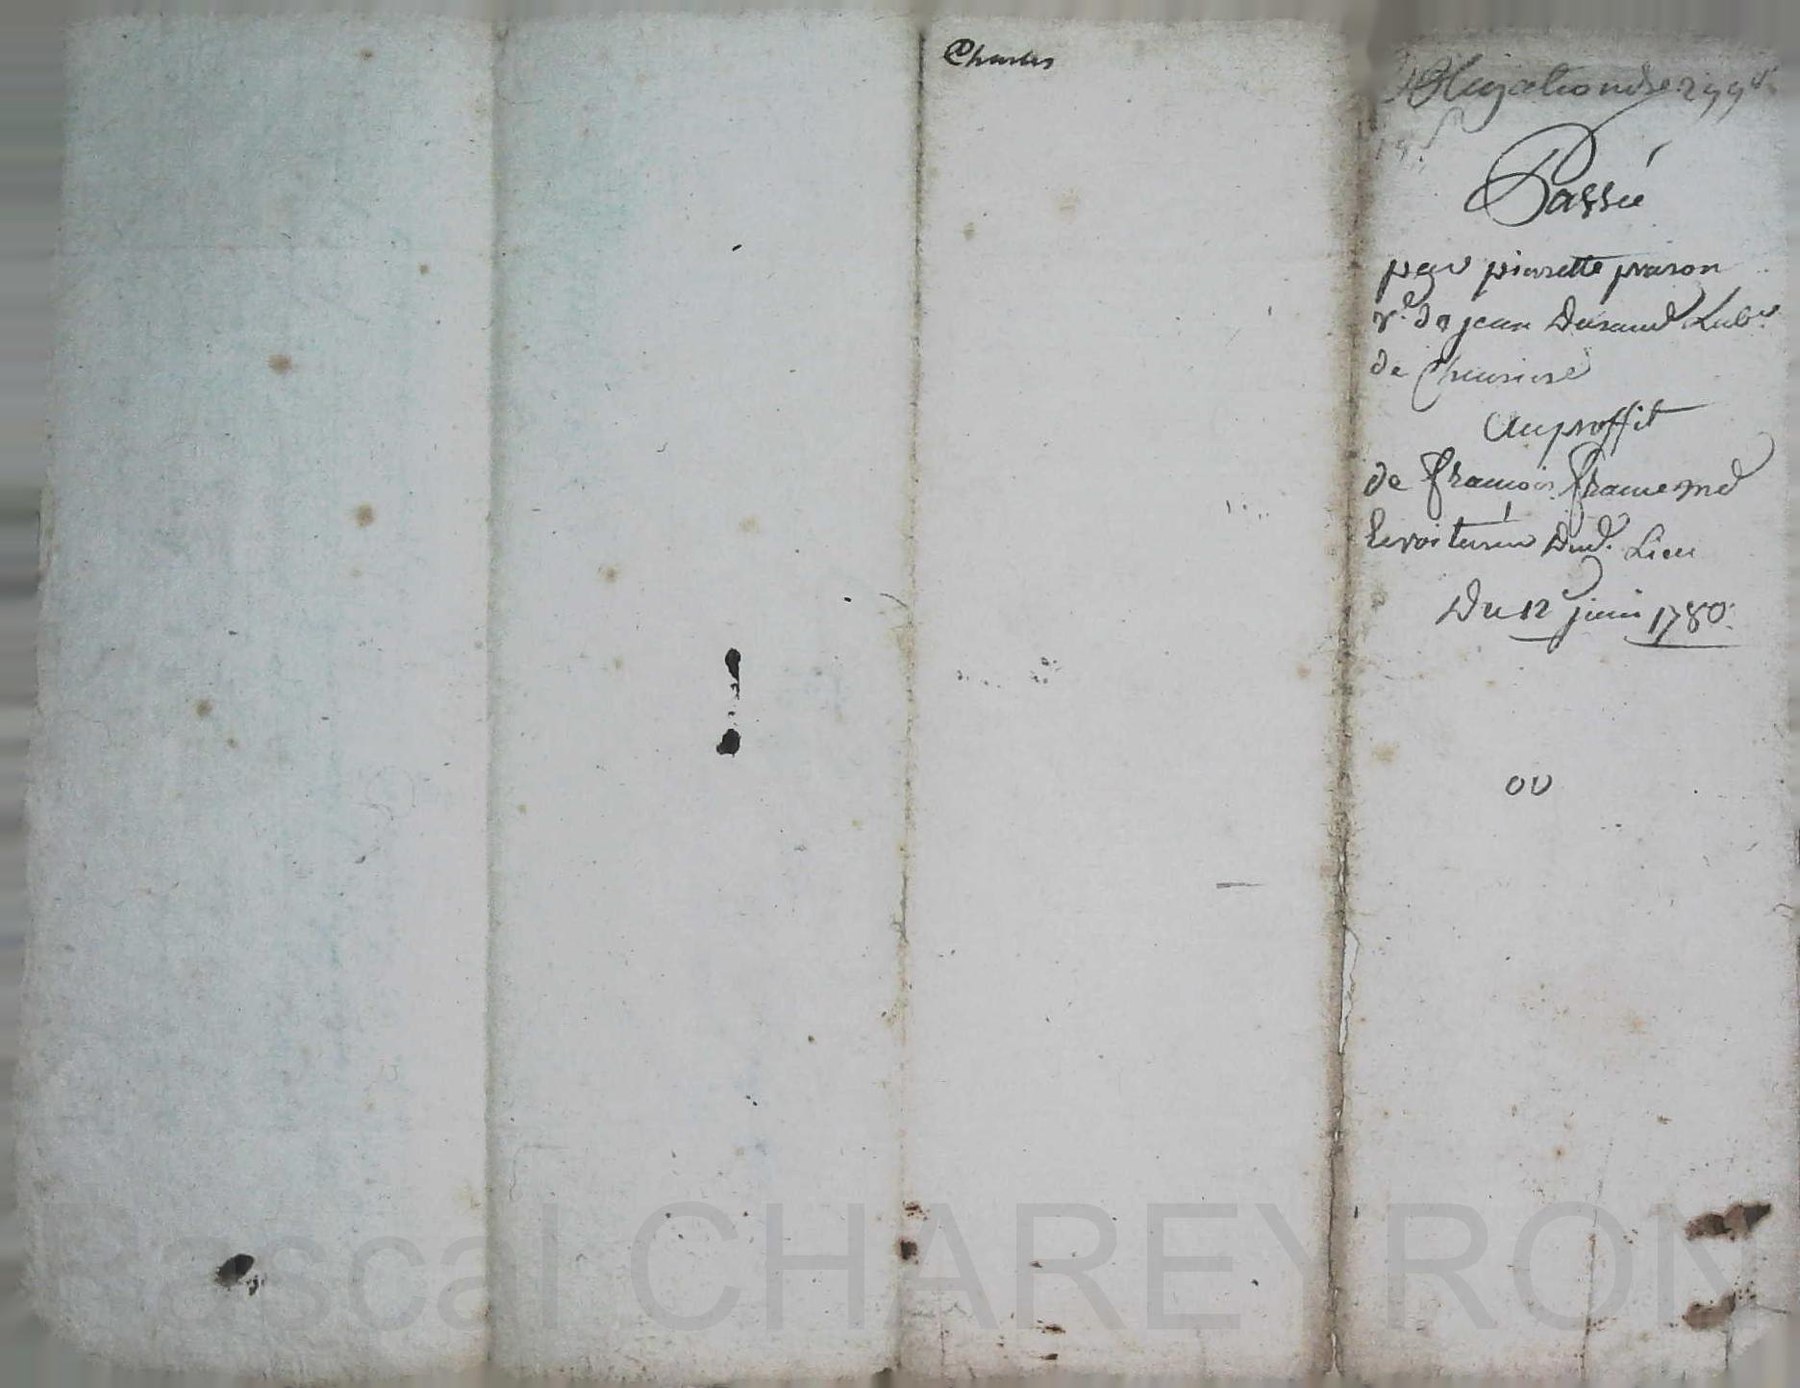 Charles
Obligation de 299th
18 s
Passée
par pierrette praron
ve. de jean Durand Labr.
de Cheisiere
Au proffit
de francois france md
Et voiturier Dud. Lieu
Du 12 juin 1780.
00
Pascal CHAREYRON